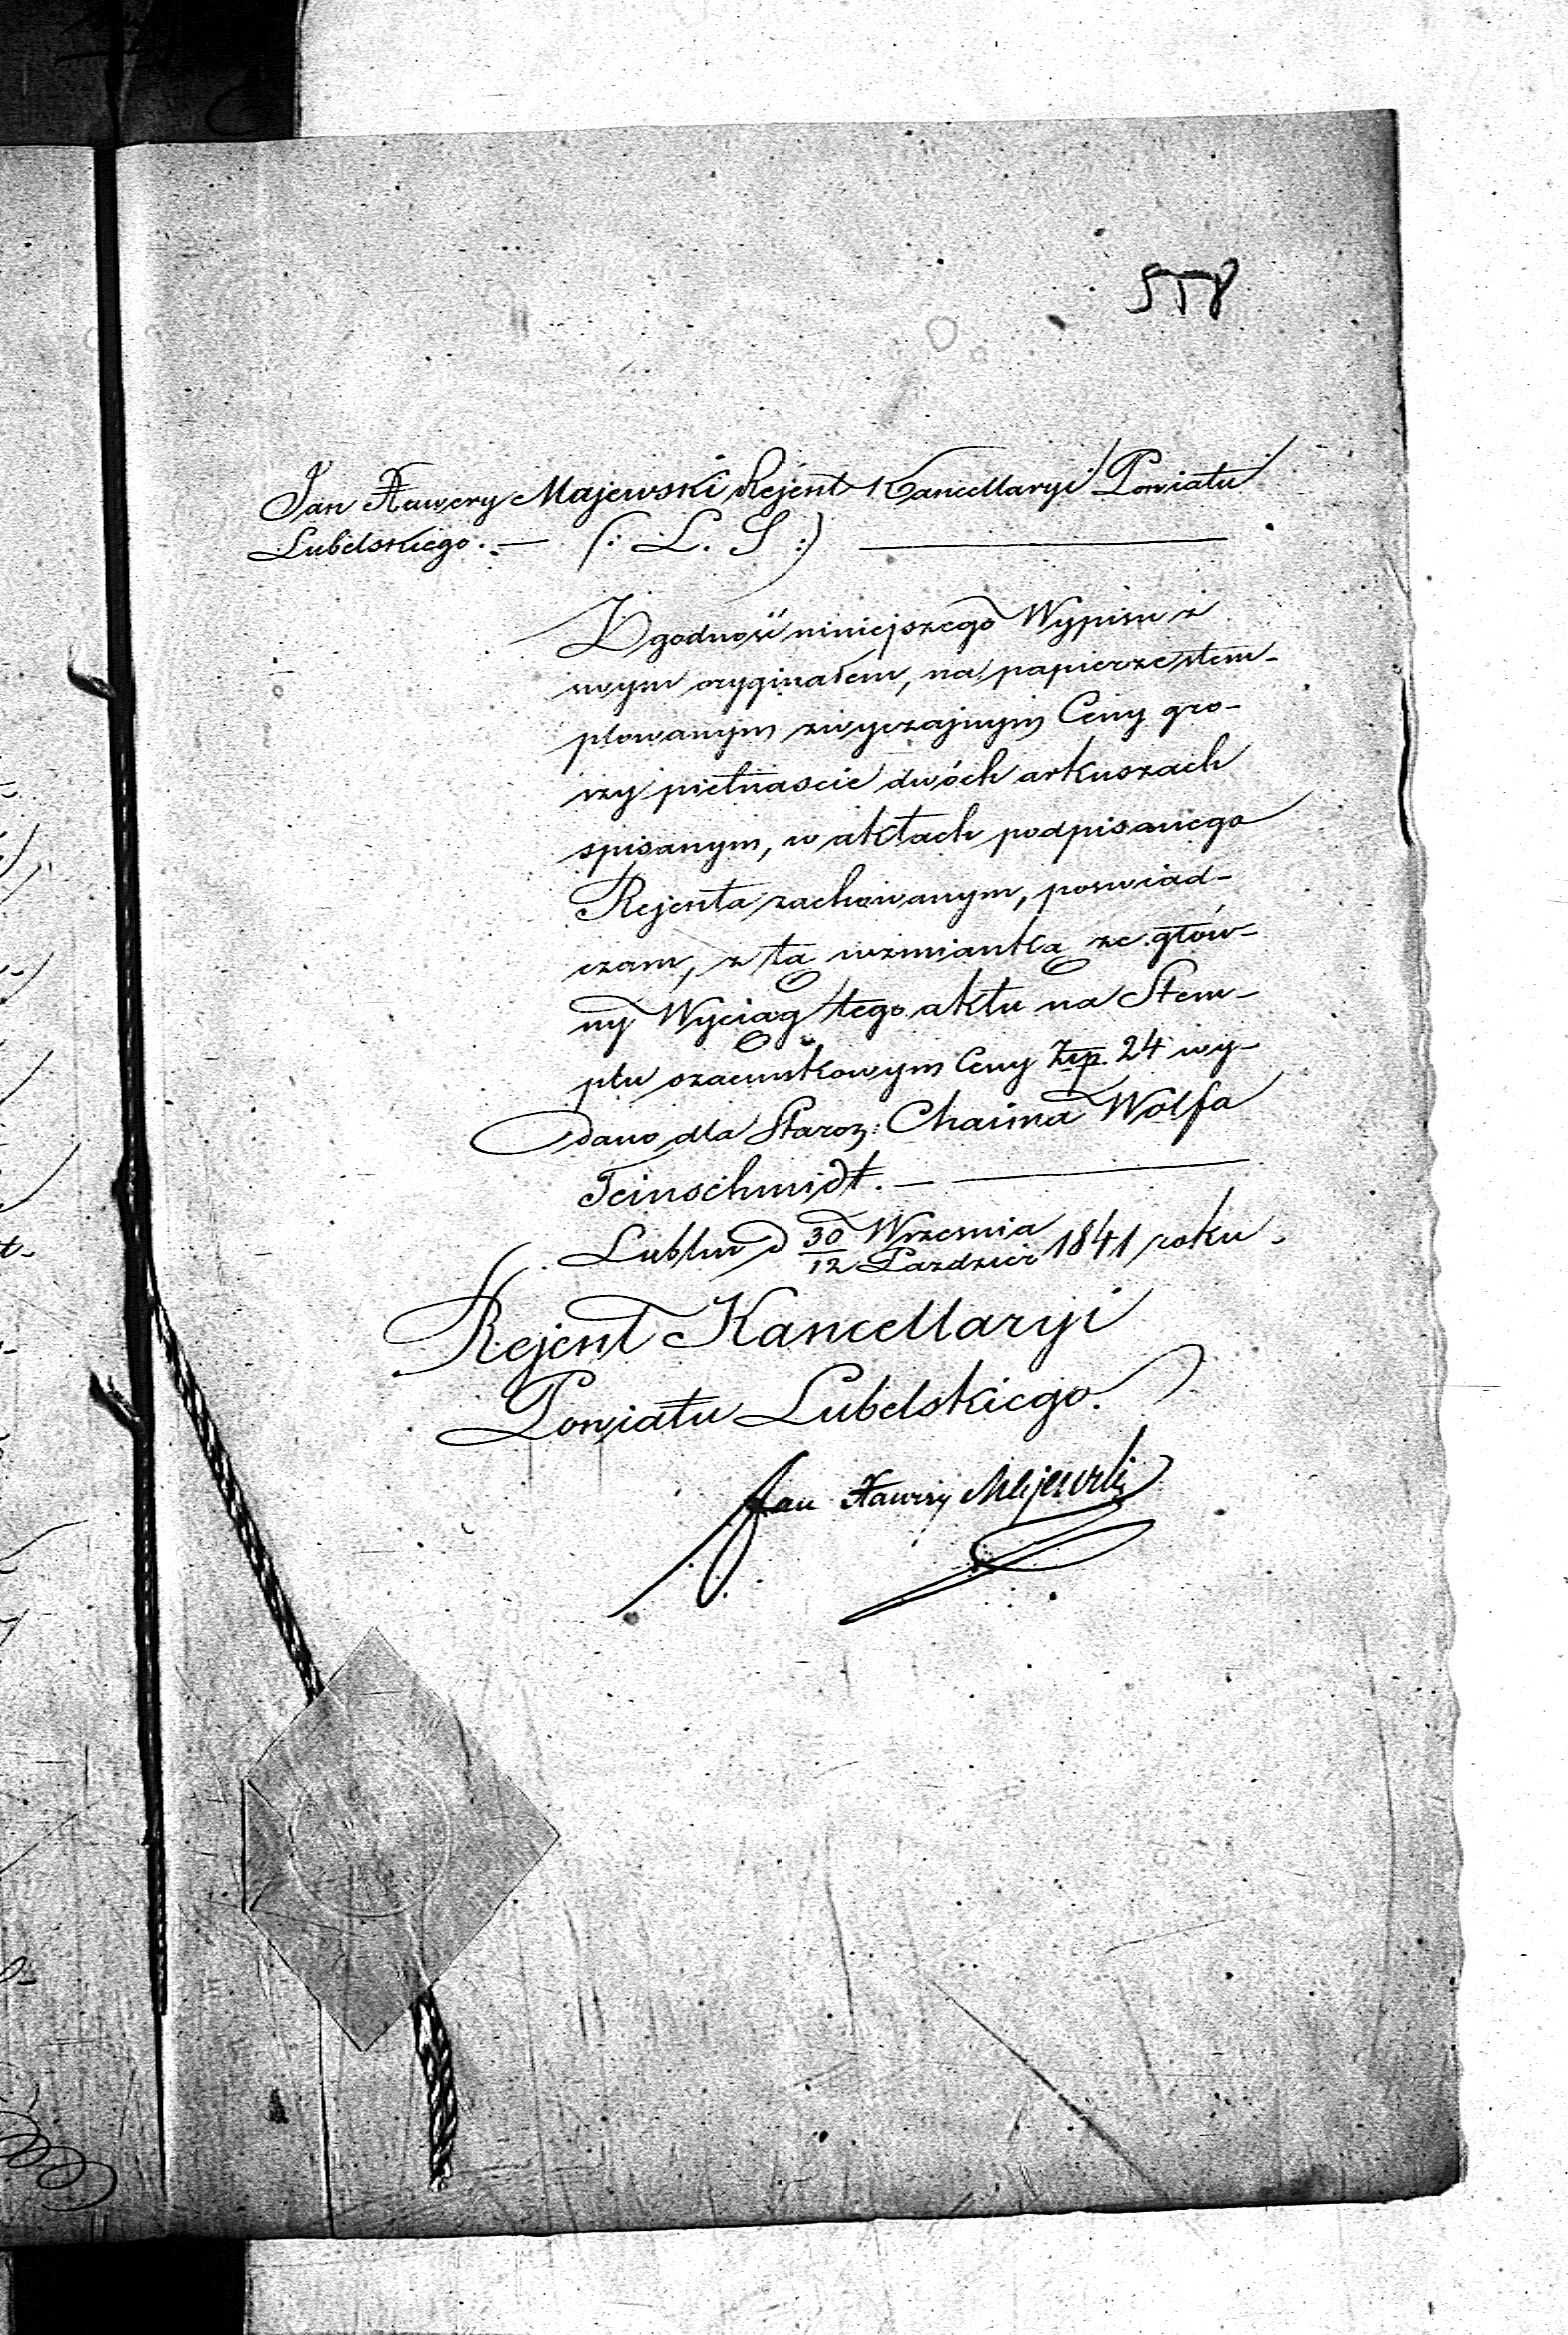 558
Jan Xawery Majewski Rejent Kancellaryi Powiatu
Lubelskiego. — (: L. S :) —
Zgodność niniejszego Wypisu z
swym oryginałem, na papierze stem-
plowanym zwyczajnym Ceny gro-
szy pietnascie dwóch arkuszach
spisanym, w aktach podpisanego
Rejenta zachowanym, poswiad-
czam, z tą wzmianką ze głów-
ny Wyciąg tego aktu na Stem-
plu szacunkowym Ceny Złp. 24 wy-
dano dla Staroz: Chaima Wolfa
Feinschmidt. —
Lublin d 30/12 Wrzesnia/Pazdzier 1841 roku.
Rejent Kancellaryi
Powiatu Lubelskiego.
Jan Xawery Majewski